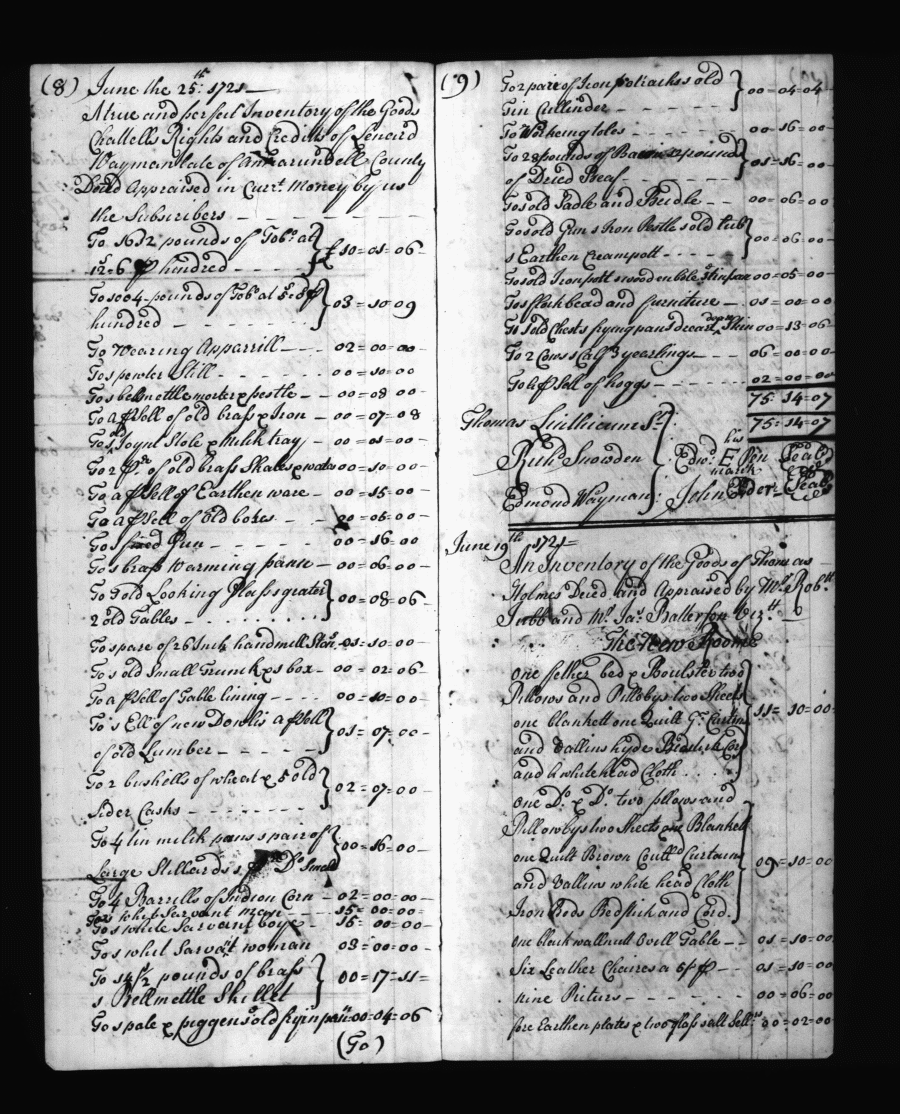 (8)
June the 25th: 1721
A true and perfect Inventory of the Goods
Chattells Rights and Credits of Lenerd
Wayman late of Annarundell County
Decd Appraised in Curt Money by us
the Subscribers
To 1612 pounds of Tobo at
12=6 p hundred £10=01=06
To 1004 pounds of Tobo at p
hundred 03=10=09
To Wearing Apparrill 02=00=00
To 1 pewter Still 00=10=00
To 1 bellmettle morter & pestle 00=08=00
To a psell of old brass & Iron 00=07=08
To 1 old Joynt Stole & Milk tray 00=01=00
To 2 pr of old brass Skales & waits 00=10=00
To a psell of Earthen ware 00=15=00
To a psell of old boxes 00=05=00
To 1 fixed Gun 00=16=00
To 1 brass Warming pann 00=06=00
To 1 old Looking Glass 1 grater
2 old Tables 00=08=06
To 1 pare of 26 Inch handmill Stons 01=10=00
To 1 old Small Trunk & 1 box 00=02=06
To a psell of Table lining 00=10=00
To 1 Ell of new Dowlis a psell
of old Lumber 01=07=00
To 2 bushells of wheat & 5 old
Sider Casks 02=07=00
To 4 tin milik pans 1 pair of
Large Stilliards 1 Do Small 00=16=00
To 4 Barrills of Indion Corn 02=00=00
To 1 whit Servant 15=00=00
To 1 white Sarvant boye 15=00=00
To 1 whit Sarvat woman 03=00=00
To 14½ pounds of brass
1 Bellmettle Skillet 00=17=11
To 1 pale & piggen 1 old fryin pan 00=04=06
(To)
(9)
To 2 pare of Iron potrackes 1 old
Tin Cullinder 00=04=04
To Working toles 00=16=00
To 28 pounds of Bacon pound
of Dried Beaf 01=16=00
To 1 old Sadle and Bridle 00=06=00
To 1 old Gun 1 Iron Pestle 1 old tub
1 Earthen Creampott 00=06=00
To 1 old Ironpott 1 wooden bole 00=05=00
To 1 flock bead and furniture 01=00=00
To 1 old Chests frying pan 1 Skin 00=13=06
To 2 Cows 1 Calf 3 yearlings 06=00=00
To a psell of hoggs 02=00=00
75=14=07
75=14=07
Thomas Sr
Richd Snowden
Edmond Wayman
his
Edwd E Pen Seald
mark
John Elder Seald
June 19th 1721
An Inventory of the Goods of Thomas
Holmes Decd and Appraised by Mr Robtt
Jubb and Mr Jas Batterson Vizt
The New Roome
one fether bed & Boulster two
Pillows and Pillobys two Sheets
one blankett one Quilt Curtins
and Vallins hyde Bedstick Cord
and A white head Cloth 11=10=00
one Do & Do two pillows and
Pillowbys two Sheets one Blankett
one Quilt Brown Curtain
and Vallins white head Cloth
Iron Rods Bedstick and Cord 09=10=00
one black wallnutt Ovill Table 01=10=00
Six Leather Chaires a 5/ p 01=10=00
nine Picturs 00=06=00
five Earthen plates & two glass salt Sellrs 00=02=00